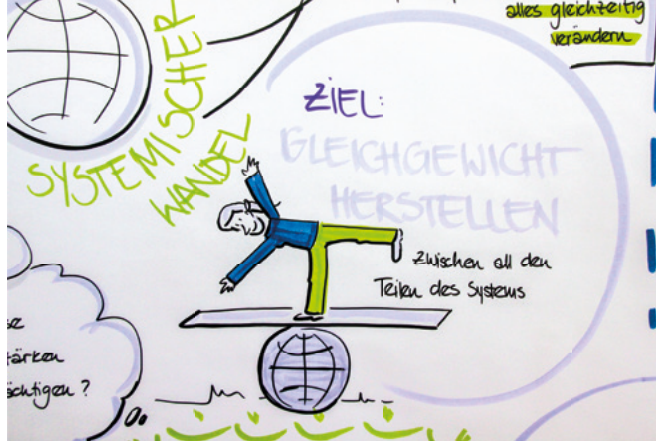 alles gleichzeitig
verändern
SYSTEMISCHER
WANDEL
ZIEL:
GLEICHGEWICHT
HERSTELLEN
zwischen all den
Teilen des Systems